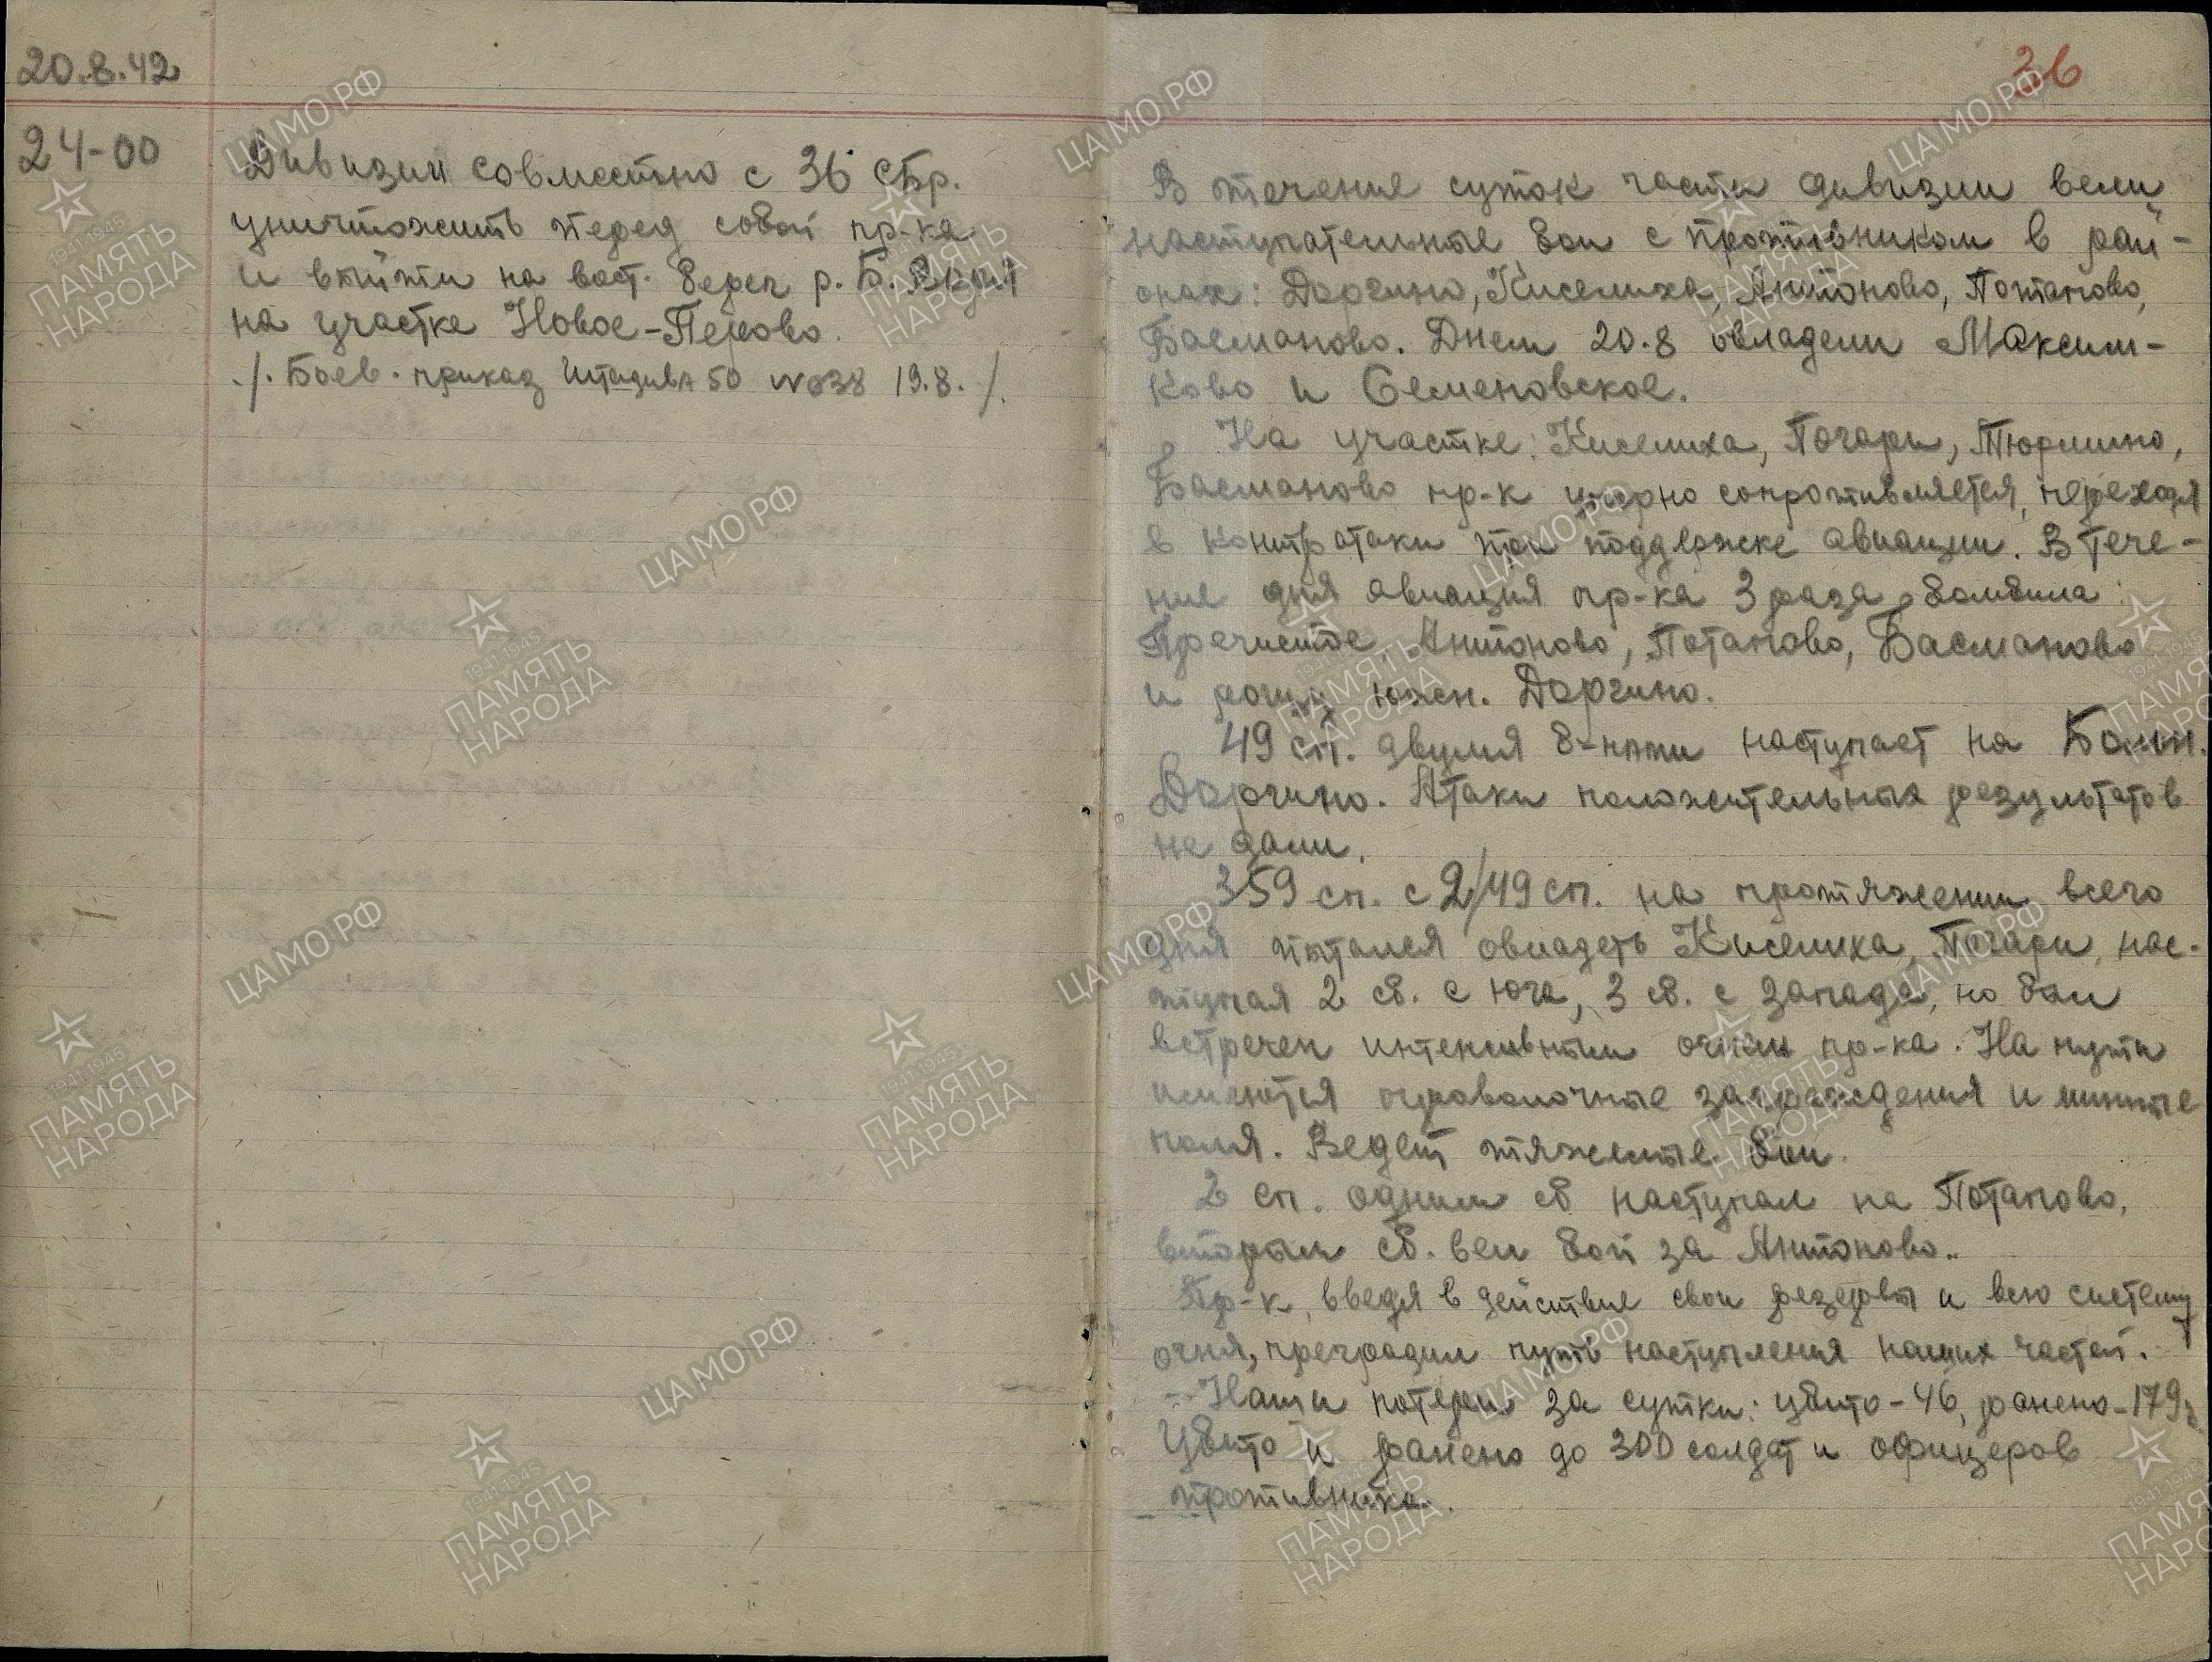 20.8.42
24-00
Дивизии совместно с 36 СБр.
уничтожить перед собой пр-ка
и выйти на вост. берег р. Б.
на участке Новое-Перово.
/. Боев. приказ Штадива 50 №038 19.8./.
36
В течение суток части дивизии вели
наступательные бои с противником в рай-
онах: Доргино, Киселиха, Антоново, Потапово,
Басманово. Днем 20.8 овладели Максим-
ково и Семеновское.
На участке: Киселиха, Погари, Тюрмино,
Басманово пр-к упорно сопротивляется, переходя
в контратаки при поддержке авиации. В тече-
ние дня авиация пр-ка 3 раза бомбила:
Пречистое, Антоново, Потапово, Басманово
и рощу южн. Доргино.
49 сп. двумя б-нами наступает на Больш.
Доргино. Атаки положительных результатов
не дали.
359 сп. с 2/49 сп. на протяжении всего
дня пытался овладеть Киселиха, Погари, нас-
тупая 2 сб. с юга, 3 сб. с запада, но был
встречен интенсивным огнем пр-ка. На пути
имеются проволочные заграждения и минные
поля. Ведет тяжелые бои.
2 сп. одним сб наступал на Потапово,
вторым сб. вел бой за Антоново..
Пр-к, введя в действие свои резервы и всю систему
огня, преградил путь наступления наших частей.
Наши потери за сутки: убито-46, ранено-179.
Убито и ранено до 300 солдат и офицеров
противника.
ЦАМО РФ
1941 1945
ПАМЯТЬ
НАРОДА